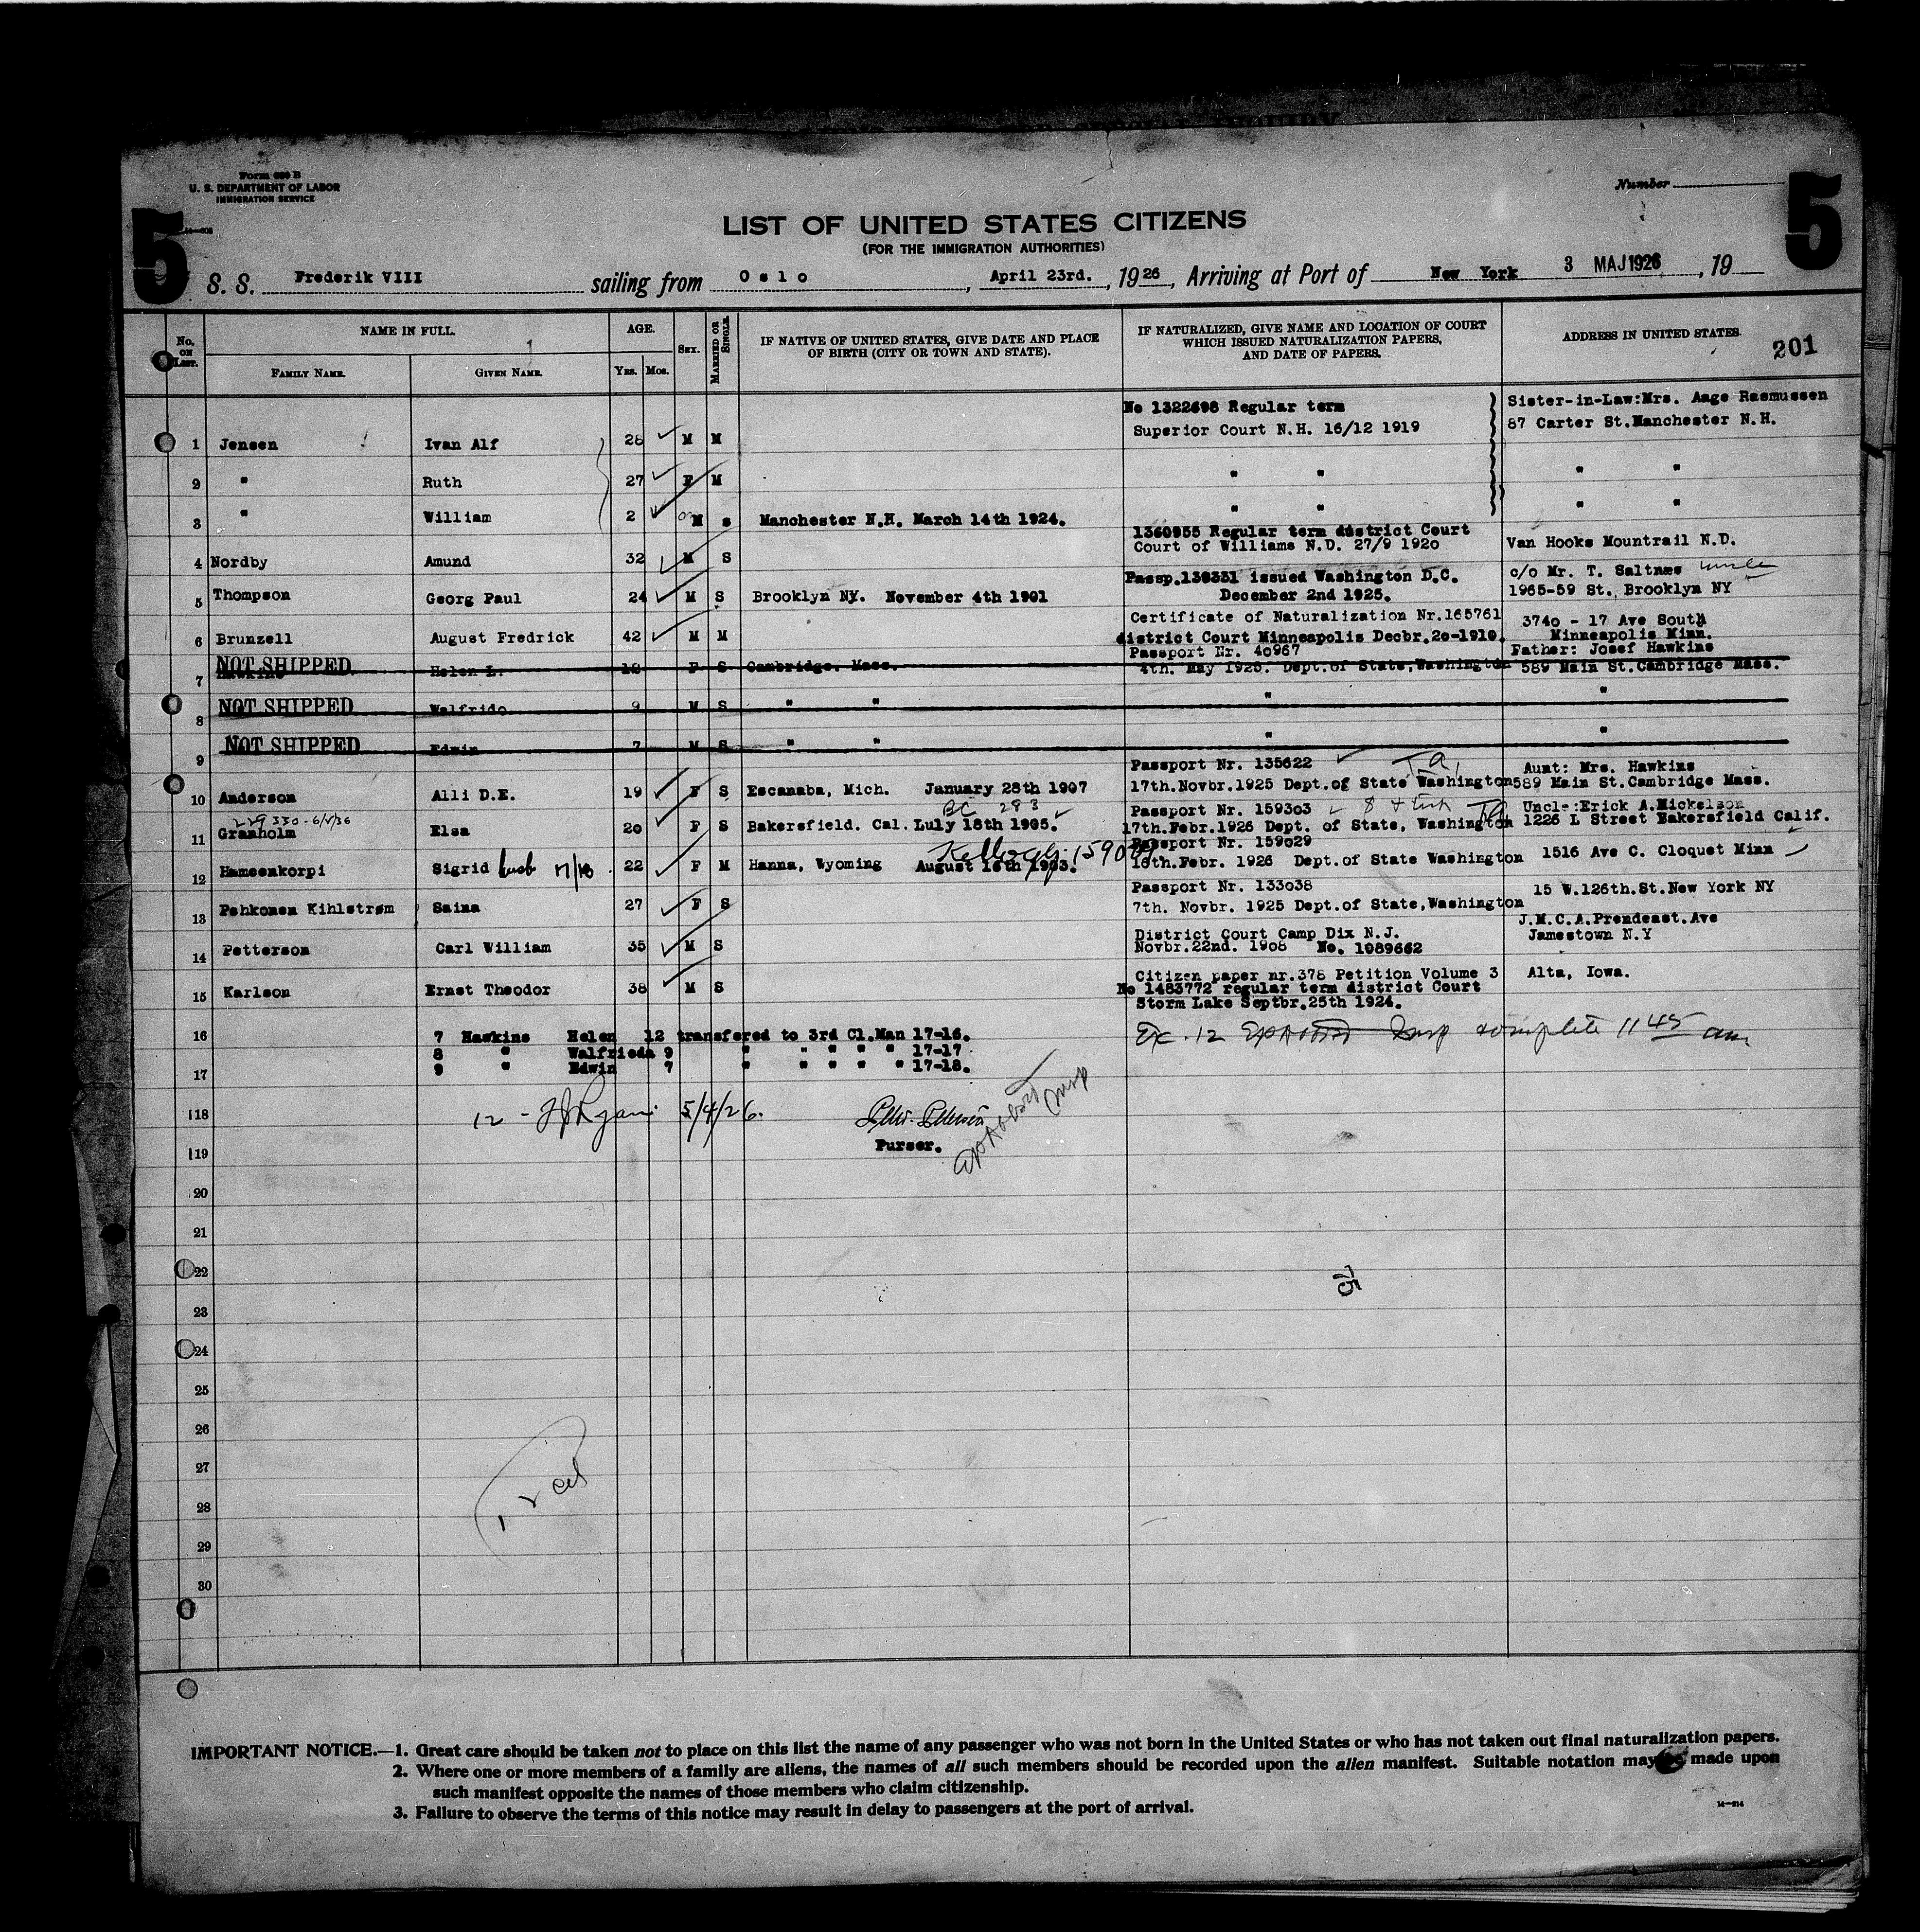 Form 630 B
U. S. DEPARTMENT OF LABOR
IMMIGRATION SERVICE
Number
5
5
LIST OF UNITED STATES CITIZENS
(FOR THE IMMIGRATION AUTHORITIES)
S. S. Frederik VIII sailing from Oslo, April 23rd., 1926, Arriving at Port of New York 3 MAJ 1926, 19
No. on List.
NAME IN FULL.
FAMILY NAME.
GIVEN NAME.
AGE.
Yrs. Mos.
SEX.
MARRIED OR SINGLE.
IF NATIVE OF UNITED STATES, GIVE DATE AND PLACE OF BIRTH (CITY OR TOWN AND STATE).
IF NATURALIZED, GIVE NAME AND LOCATION OF COURT WHICH ISSUED NATURALIZATION PAPERS, AND DATE OF PAPERS.
ADDRESS IN UNITED STATES.
201
No 1322698 Regular term Sister-in-Law:Mrs. Aage Rasmussen
1 Jensen Ivan Alf 28 M M Superior Court N.H. 16/12 1919 87 Carter St.Manchester N.H.
2 " Ruth 27 F M " " " "
3 " William 2 M s Manchester N.H. March 14th 1924. " " " "
1360955 Regular term district Court
4 Nordby Amund 32 M S Court of Williams N.D. 27/9 1920 Van Hooks Mountrail N.D.
Passp.130331 issued Washington D.C. c/o Mr. T. Saltnæs uncle
5 Thompson Georg Paul 24 M S Brooklyn NY. November 4th 1901 December 2nd 1925. 1965-59 St., Brooklyn NY
Certificate of Naturalization Nr.165761 3740 - 17 Ave South
6 Brunzell August Fredrick 42 M M district Court Minneapolis Decbr.20-1910. Minneapolis Minn.
Passport Nr. 40967 Father: Josef Hawkins
7 NOT SHIPPED Helen L. F S Cambridge, Mass. 4th. May 1925. Dept.of State,Washington 589 Main St.Cambridge Mass.
8 NOT SHIPPED Walfrido 9 M S " " " "
9 NOT SHIPPED Edwin 7 M S " " " "
Passport Nr. 135622 Aunt: Mrs. Hawkins
10 Anderson Alli D.E. 19 F S Escanaba, Mich. January 28th 1907 17th.Novbr.1925 Dept.of State Washington 589 Main St.Cambridge Mass.
BC 293 Passport Nr. 159303 Uncle:Erick A.Mickelson
11 Granholm Elsa 20 F S Bakersfield. Cal. Luly 18th 1905. 17th.Febr.1926 Dept. of State, Washington 1226 L Street Bakersfield Calif.
Passport Nr. 159029
12 Hamsenkorpi Sigrid 22 F M Hanna, Wyoming August 16th 1903. 16th.Febr. 1926 Dept.of State Washington 1516 Ave C. Cloquet Minn
Passport Nr. 133038 15 W.126th.St.New York NY
13 Pehkonen Kihlstrøm Saima 27 F S 7th. Novbr. 1925 Dept.of State,Washington
J.M.C.A.Prendeast.Ave
14 Petterson Carl William 35 M S District Court Camp Dix N.J. Jamestown N.Y
Novbr.22nd. 1908 No. 1089662
15 Karlson Ernst Theodor 38 M S Citizen paper nr.378 Petition Volume 3 Alta, Iowa.
No 1483772 regular term district Court
Storm Lake Septbr.25th 1924.
16 7 Hawkins Helen 12 transfered to 3rd Cl.Man 17-16.
8 " Walfrieda 9 " " " " " 17-17
17 9 " Edwin 7 " " " " " 17-18.
18 12 - 5/4/26.
Purser.
19
20
21
22
75
23
24
25
26
27
28
29
30
IMPORTANT NOTICE.—1. Great care should be taken not to place on this list the name of any passenger who was not born in the United States or who has not taken out final naturalization papers.
2. Where one or more members of a family are aliens, the names of all such members should be recorded upon the alien manifest. Suitable notation may be made upon
such manifest opposite the names of those members who claim citizenship.
3. Failure to observe the terms of this notice may result in delay to passengers at the port of arrival.